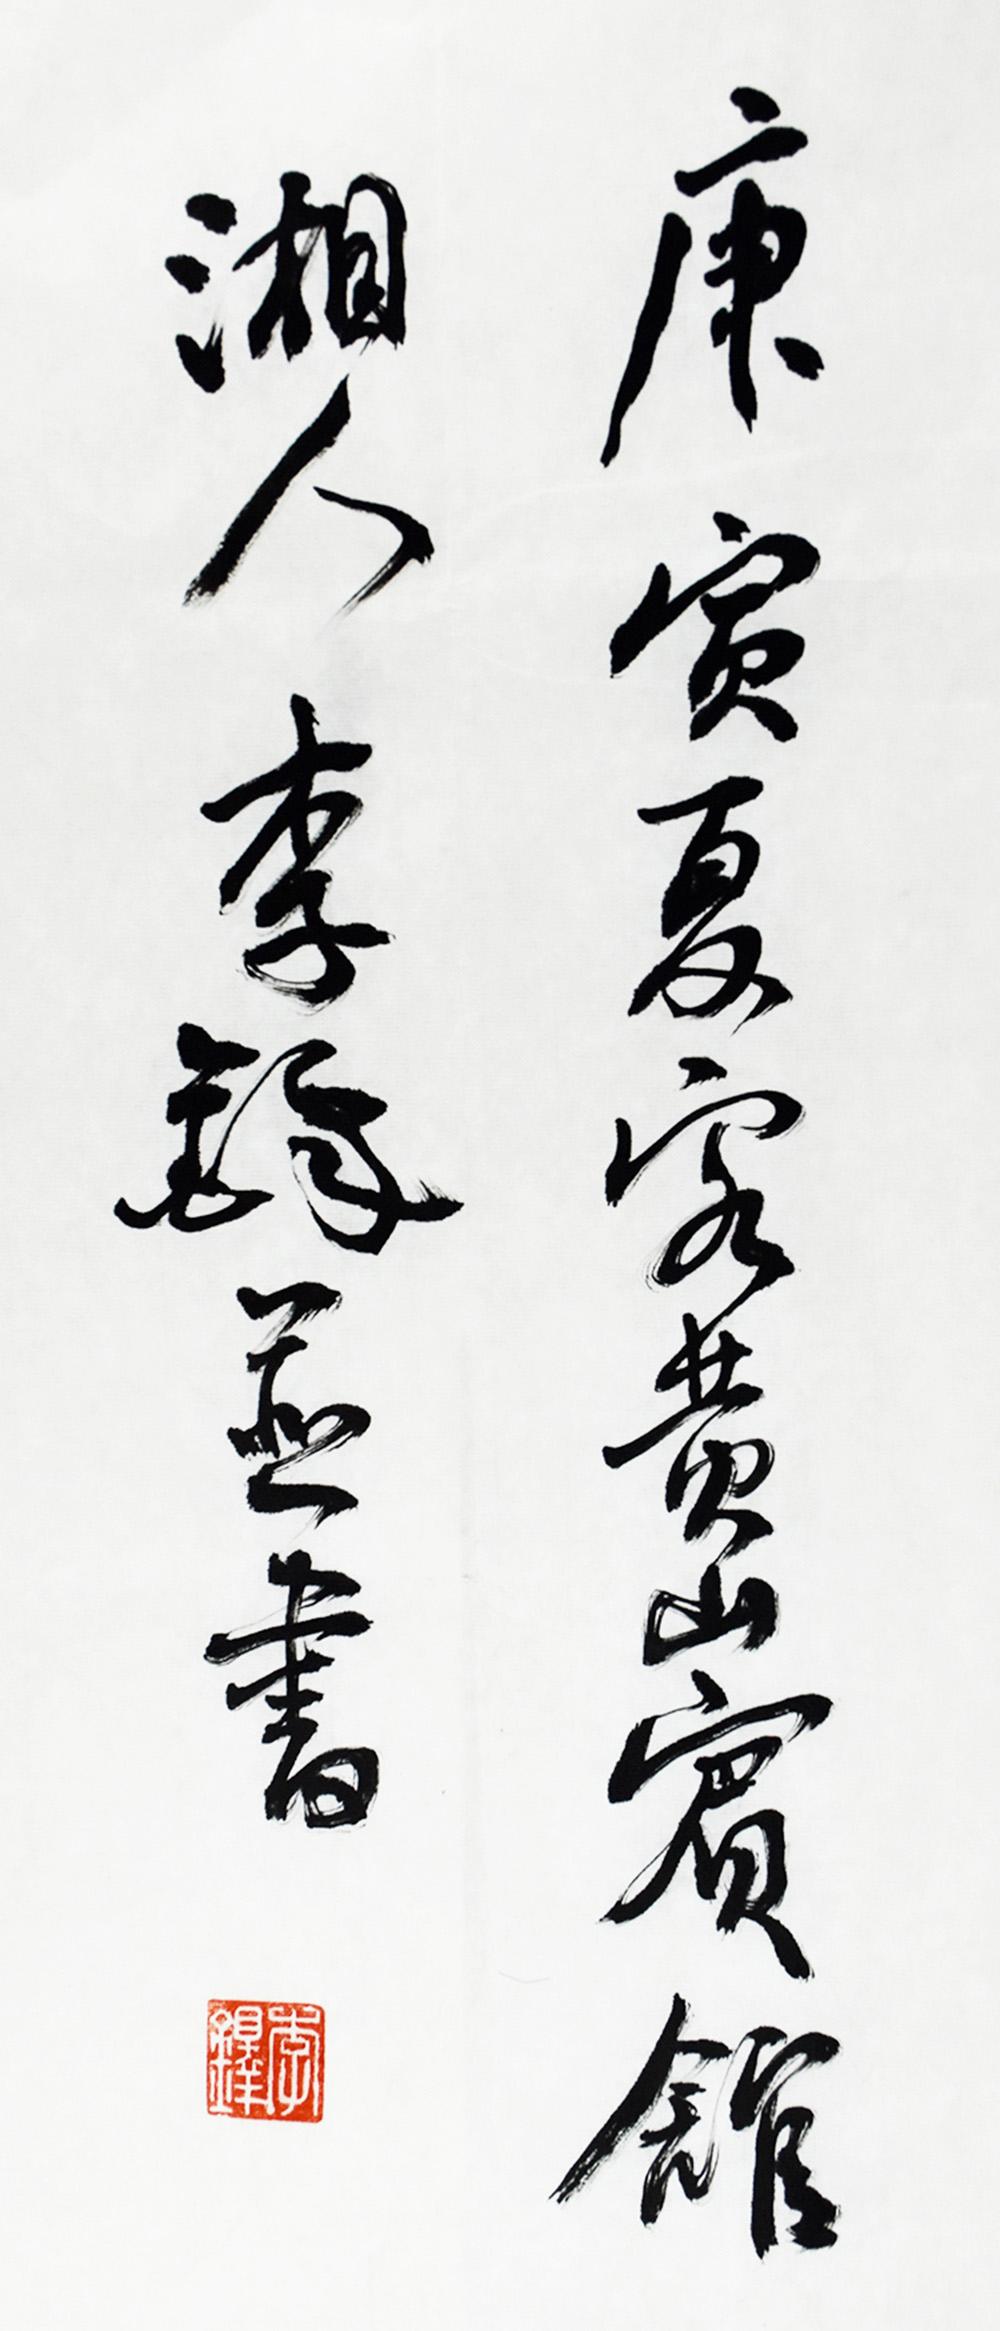 庚寅夏客黄山賓館
湘人李鐸並書
李鐸